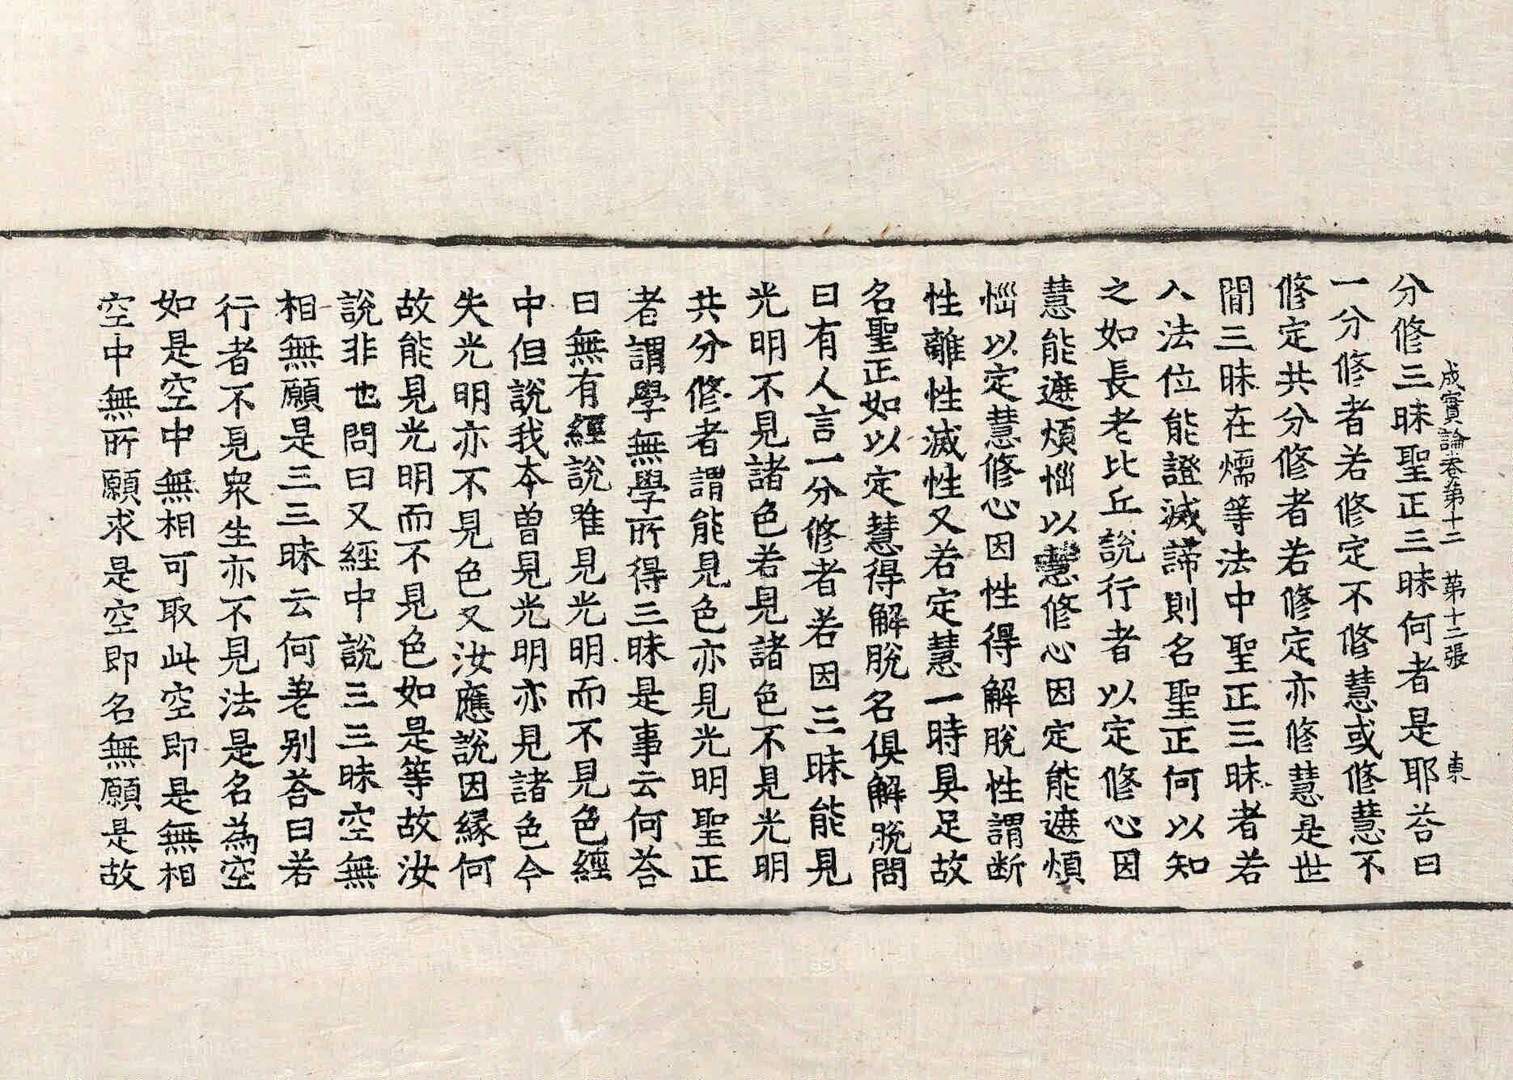 成實論卷第十二 第十二張 東
分修三昧聖正三昧何者是耶荅曰
一分修者若修定不修慧或修慧不
修定共分修者若修定亦修慧是世
間三昧在煗等法中聖正三昧者若
入法位能證滅諦則名聖正何以知
之如長老比丘說行者以定修心因
慧能遮煩惱以慧修心因定能遮煩
惱以定慧修心因性得解脫性謂断
性離性滅性又若定慧一時具足故
名聖正如以定慧得解脫名俱解脫問
曰有人言一分修者若因三昧能見
光明不見諸色若見諸色不見光明
共分修者謂能見色亦見光明聖正
者謂學無學所得三昧是事云何荅
曰無有經說唯見光明而不見色經
中但說我本曾見光明亦見諸色今
失光明亦不見色又汝應說因緣何
故能見光明而不見色如是等故汝
說非也問曰又經中說三三昧空無
相無願是三三昧云何差别荅曰若
行者不見衆生亦不見法是名為空
如是空中無相可取此空即是無相
空中無所願求是空即名無願是故